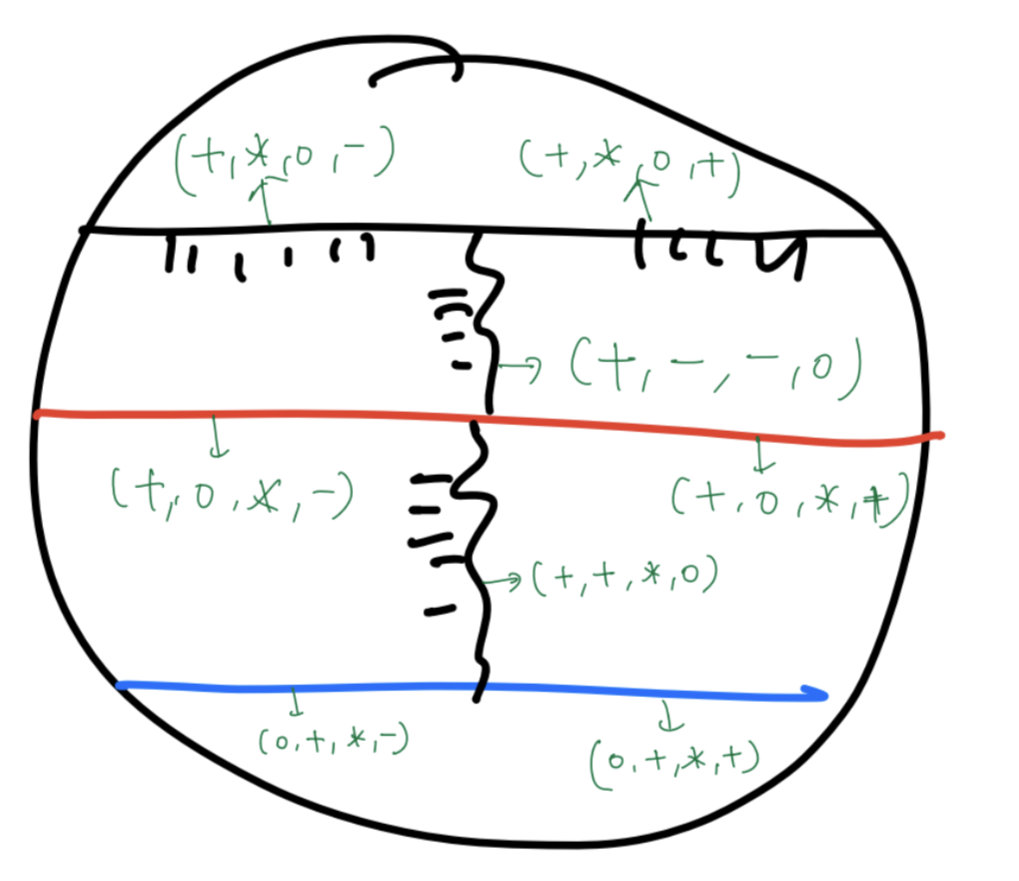 (+,*,0,-) (+,*,0,+)
(+,-,-,0)
(+,0,*,-) (+,0,*,+)
(+,+,*,0)
(0,+,*,-) (0,+,*,+)